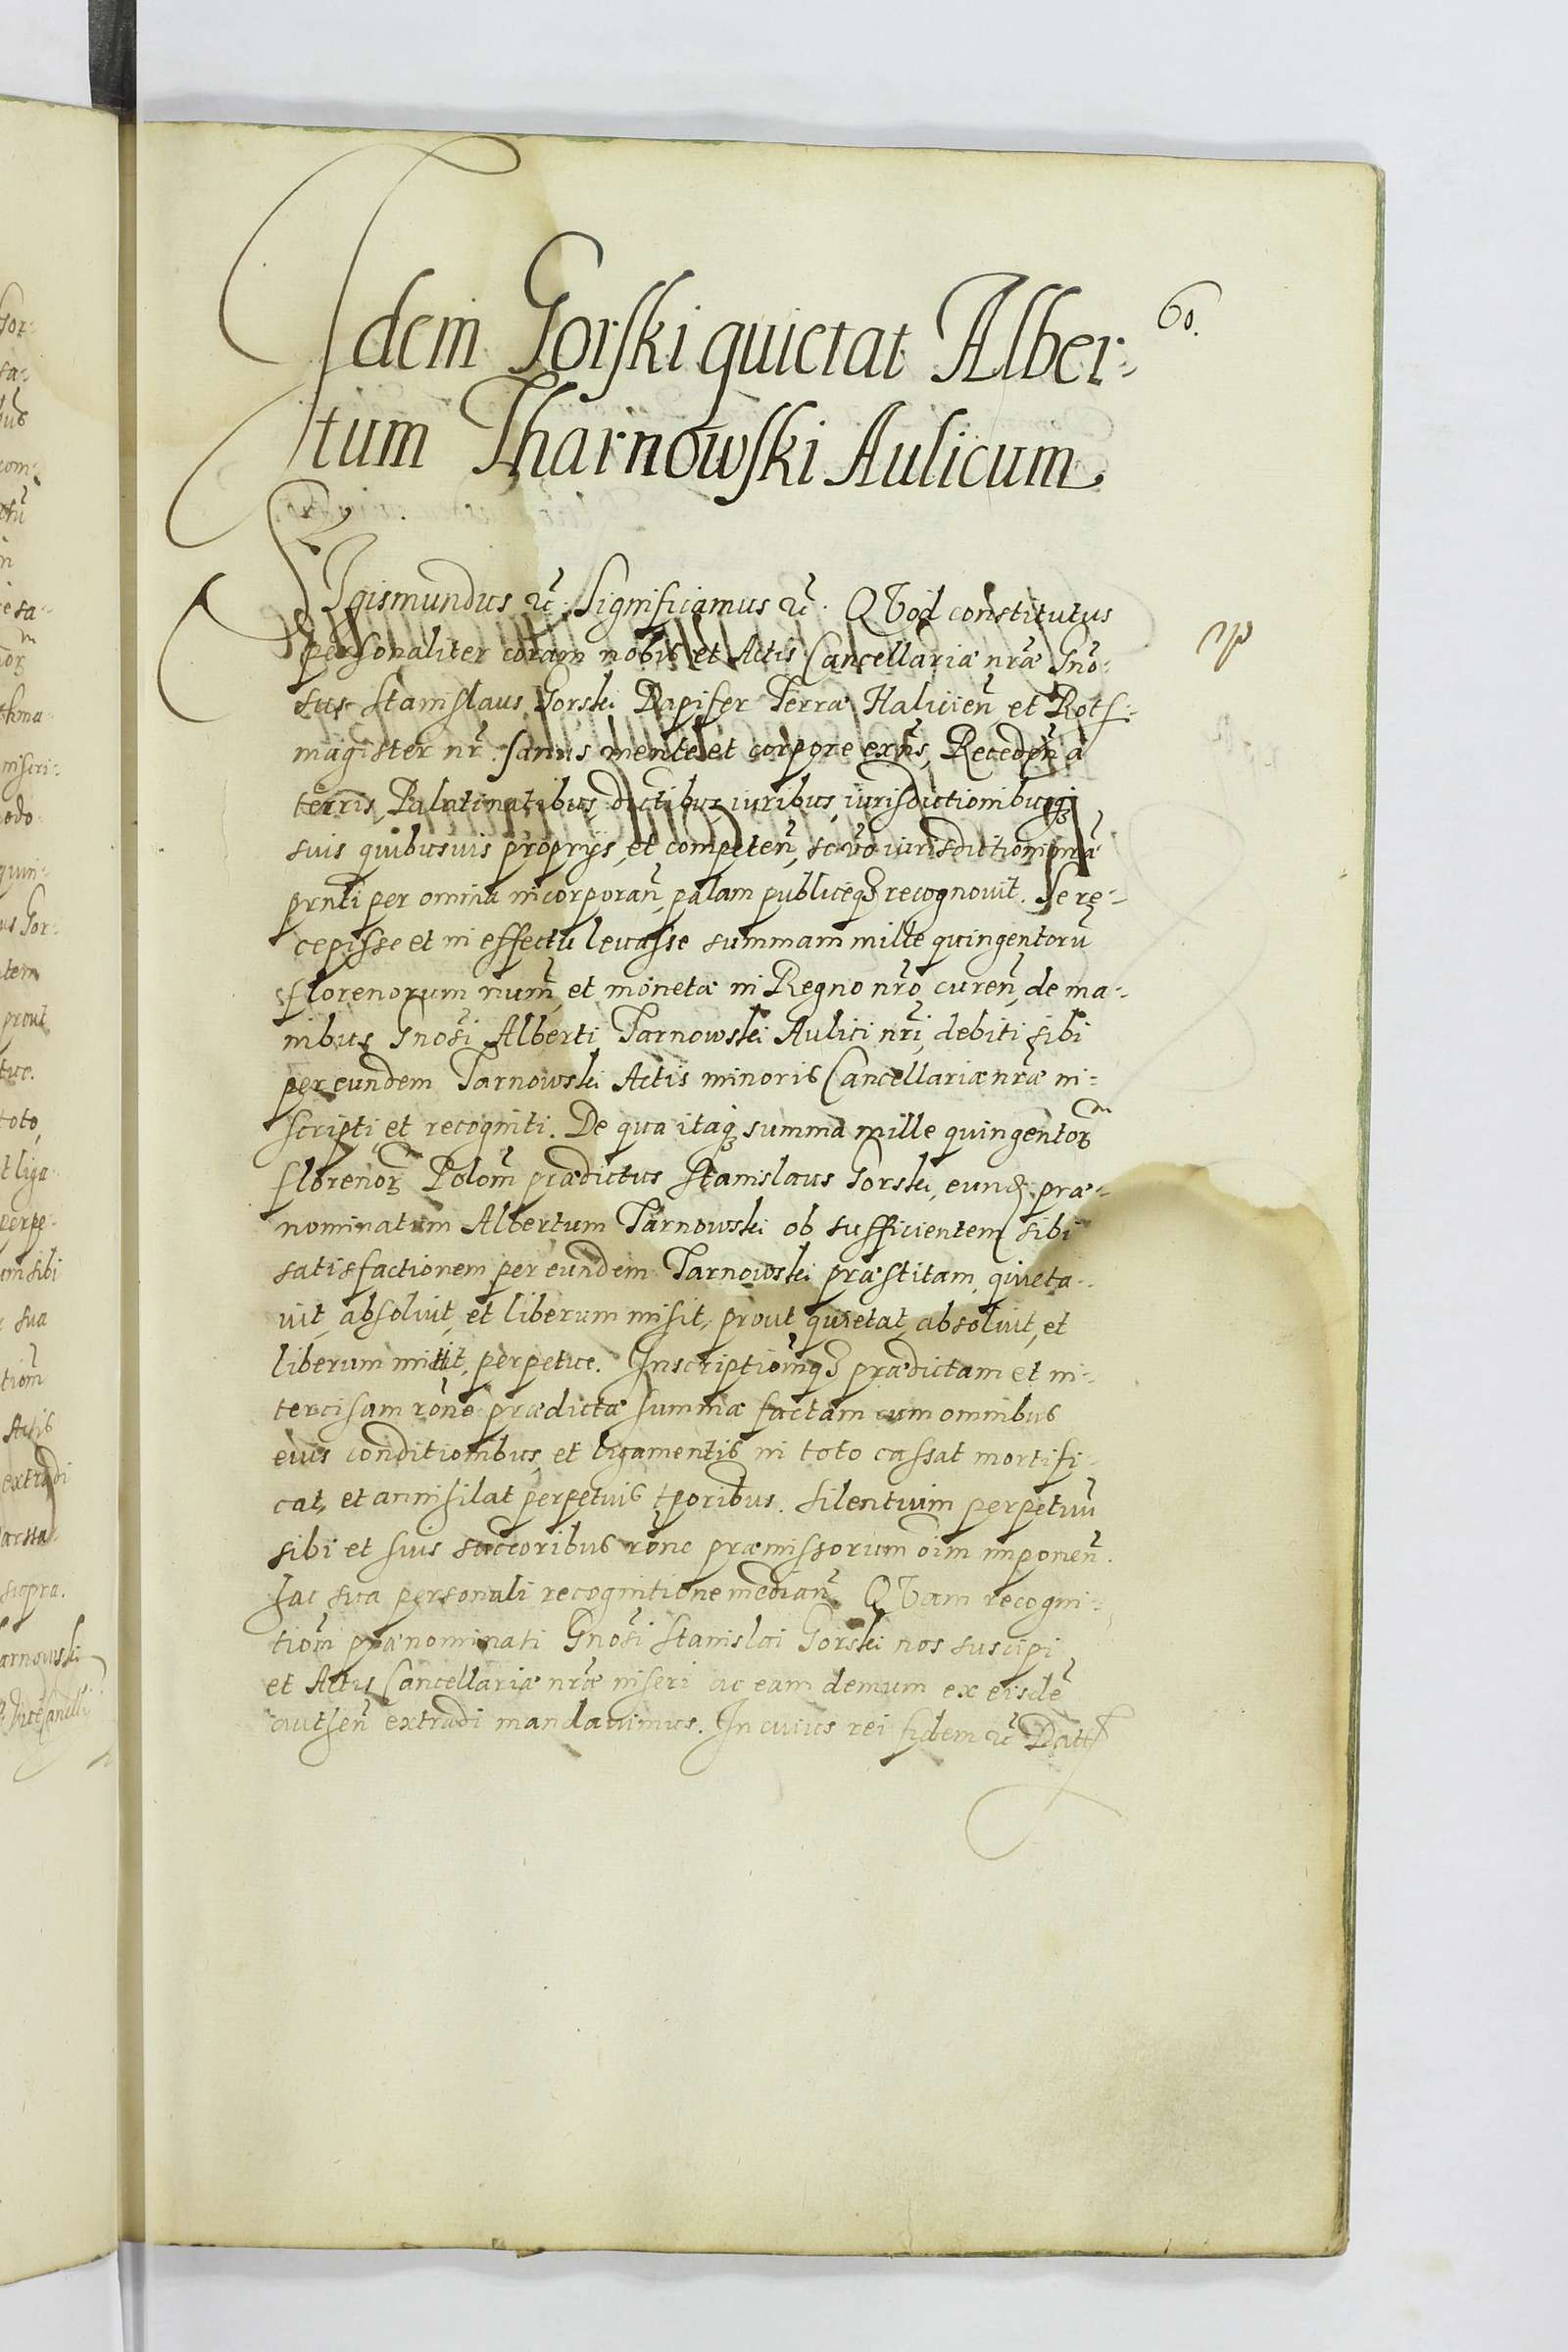 60.
Idem Gorski quietat Alber-
tum Tharnowski Aulicum
SIgismundus etc̃. Significamus etc̃. QVod constitutus
personaliter coram nobis et Actis Cancellariæ nr̃æ Gño-
sus Stanislaus Gorski Dapifer Terræ Halicień et Roth-
magister nr̃. sanus mente et corpore exñs, Recedeń a
terris, Palatinatibus, dictibus iuribus, iurisdictionibusq3
suis quibusuis proprijs, et competeń, iurisdictioni nr̃æ
prñti per omnia incorporań, palam publiceq3 recognovit. Se re-
cepisse et in effectu levasse summam mille quingentorũ
florenorum num̃, et monetæ in Regno nr̃o cureń, de ma-
nibus Gnosĩ Alberti Tarnowski Aulici nr̃i, debiti sibi
per eundem Tarnowski Actis minoris Cancellariæ nr̃æ in-
scripti et recogniti. De qua itaq3 summa mille quingentorꝝ
florenorꝝ Polom̃ prædictus Stanislaus Gorski, eund. præ-
nominatum Albertum Tarnowski ob sufficientem sibi
satisfactionem per eundem Tarnowski præstitam, quieta-
vit, absolvit, et liberum misit, prout quietat, absolvit, et
liberum mittit, perpetue. Inscriptiom̃q3 prædictam et in-
tercisam rõne prædictæ summæ factam cum omnibus
eius conditionibus, et ligamentis in toto cassat mortifi-
cat, et annihilat perpetuis tp̃oribus. Silentium perpetuũ
sibi et suis succoribus rõne præmissorum oĩm imponeń.
Hac sua personali recognitione mediań. QVam recogni-
tiom̃ prænominati Gnosĩ Stanislai Gorski nos suscipi
et Actis Cancellariæ nr̃æ inseri ac eam demum ex eisdẽ
autheń extradi mandavimus. In cuius rei fidem etc̃ Datt